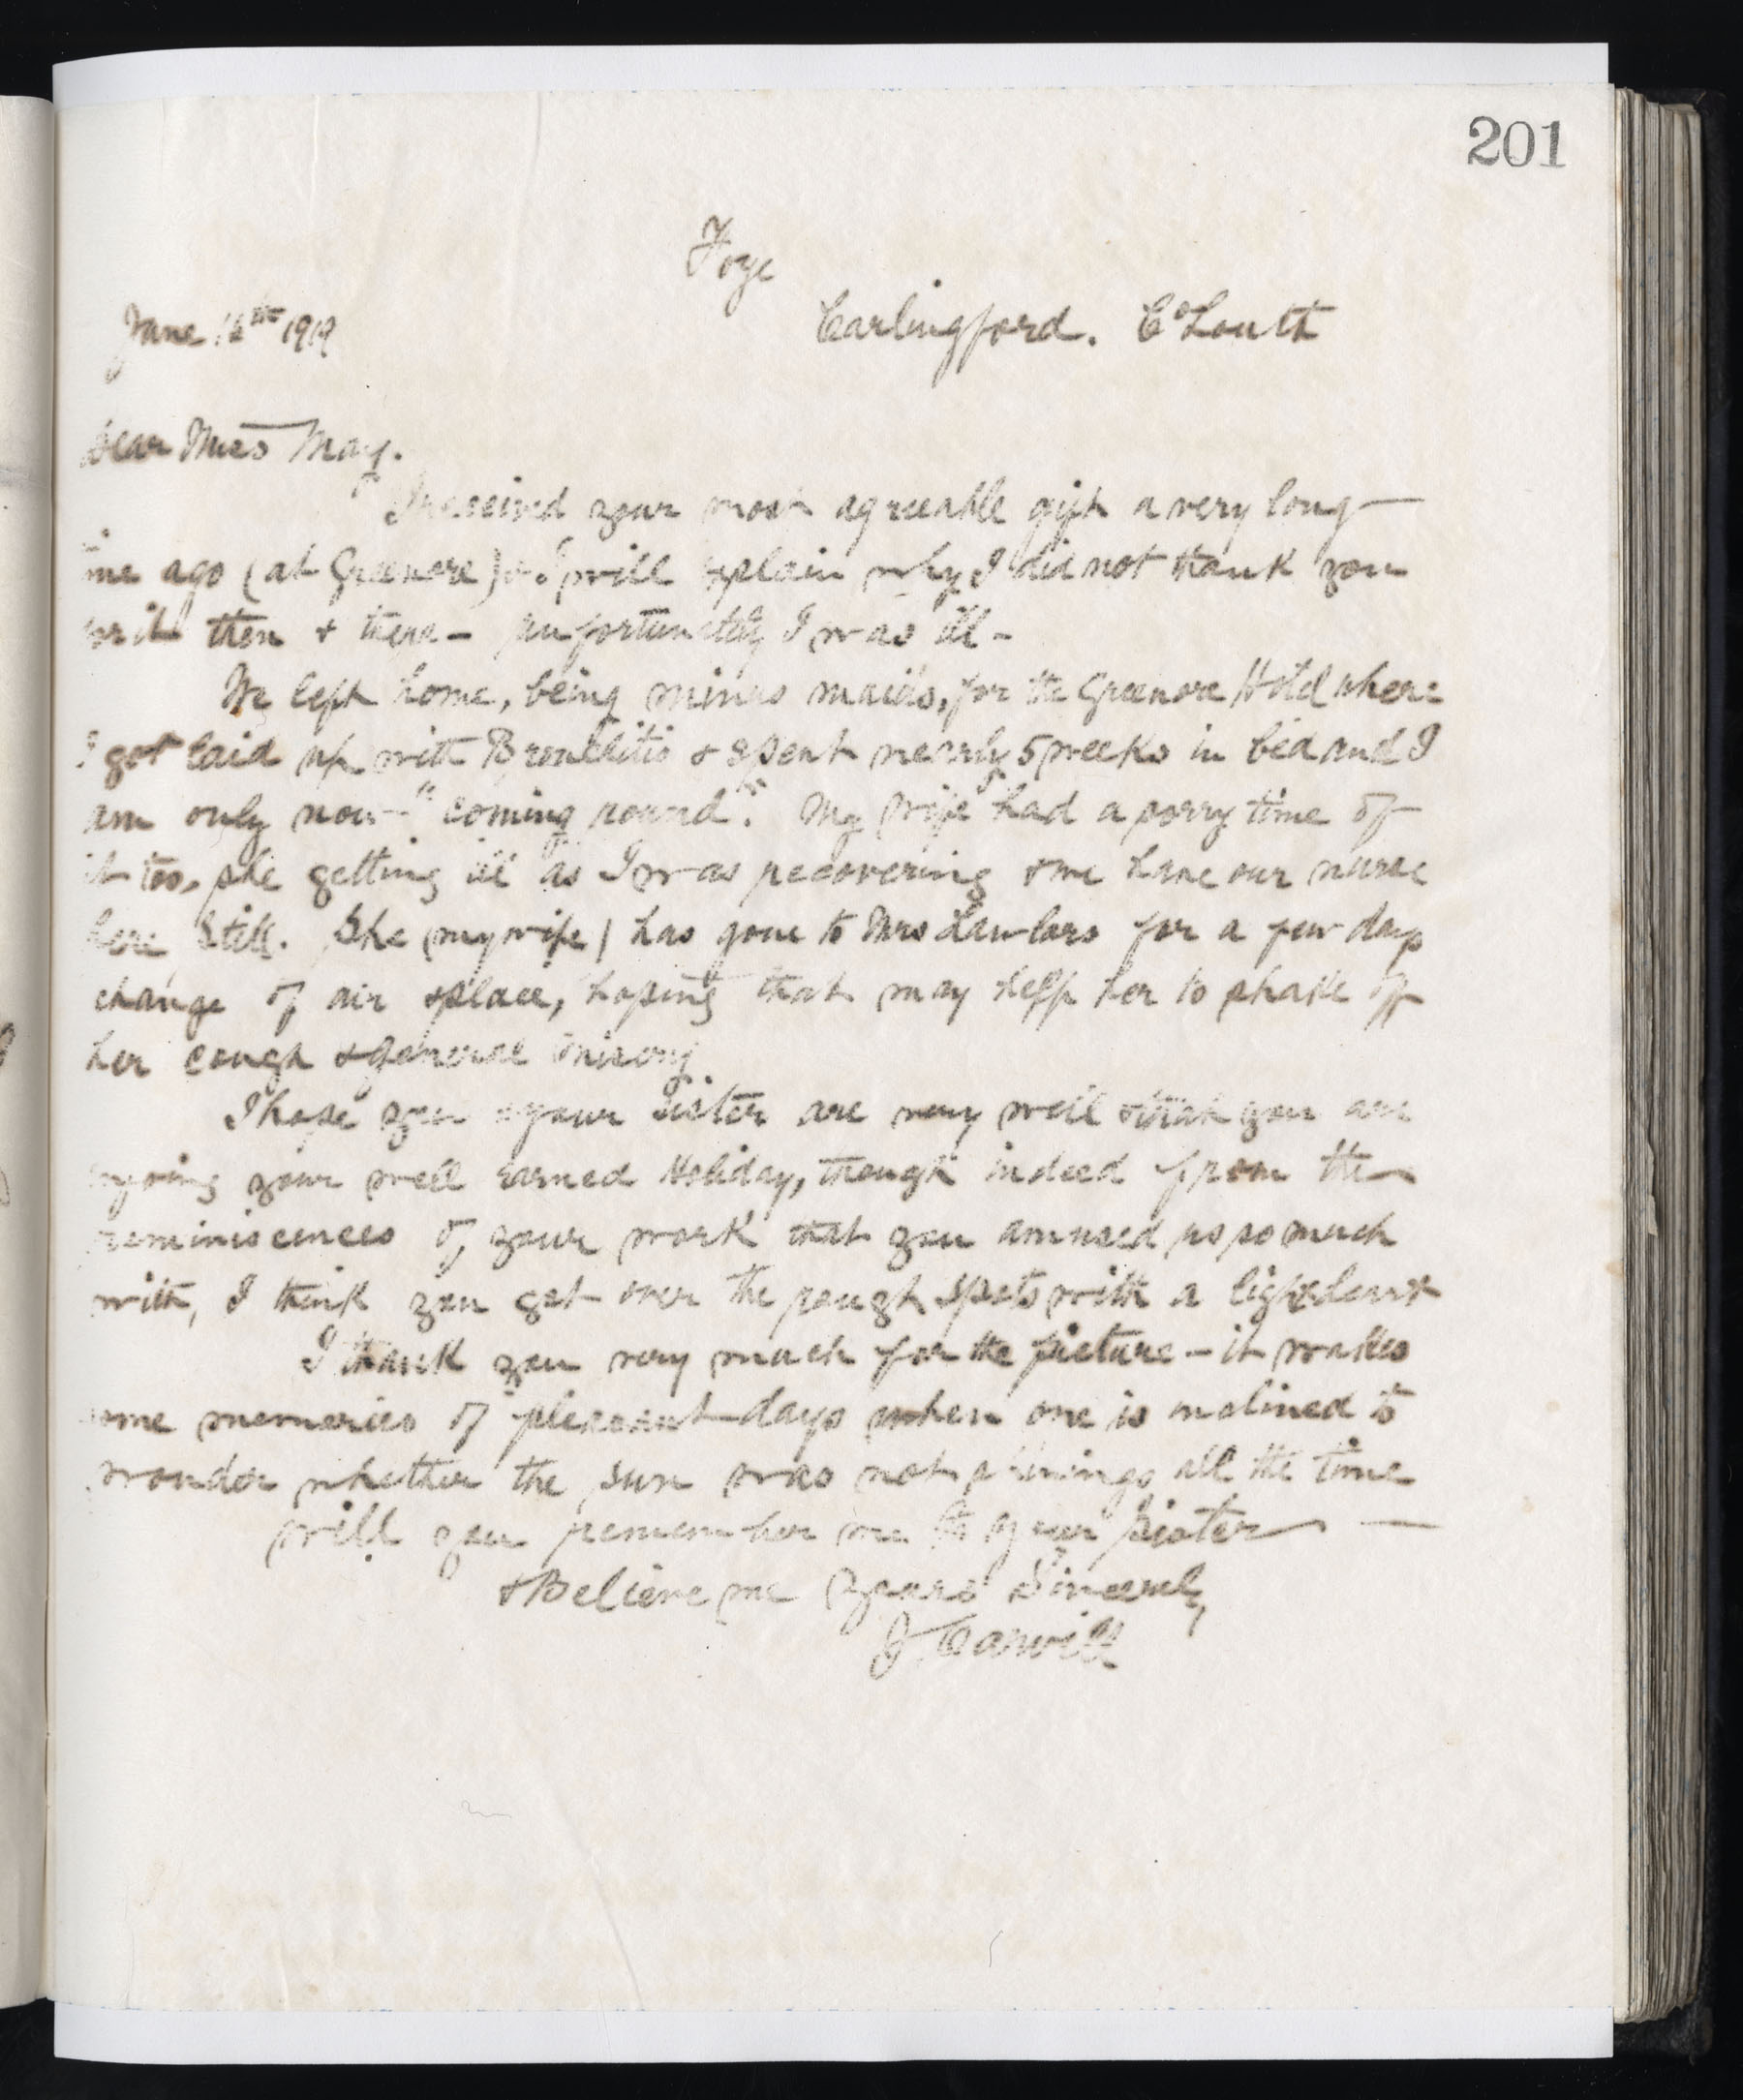 201
Foye
June 12th 1919 Carlingford. Co Louth
Dear Miss May.
I received your most agreeable gift a very long
time ago (at Greenore) & I will explain why I did not thank you
for it then & there - unfortunately I was ill -
We left home, being minus maids, for the Greenore Hotel where
I got laid up with Bronchitis & spent nearly 5 weeks in bed and I
am only now "coming round". My wife had a sorry time of
it too, she getting ill as I was recovering & we have our nurse
here still. She (my wife) has gone to Mrs Lawlors for a few days
change of air & place, hoping that may help her to shake off
her cough & general misery.
I hope you & your sister are very well & that you are
enjoying your well earned Holiday, though indeed from the
reminiscences of your work that you amused us so much
with, I think you get over the rough spots with a light heart
I thank you very much for the picture - it wakes
some memories of pleasant days when one is inclined to
wonder whether the sun was not shining all the time
will you remember me to your sister -
& Believe me yours Sincerely